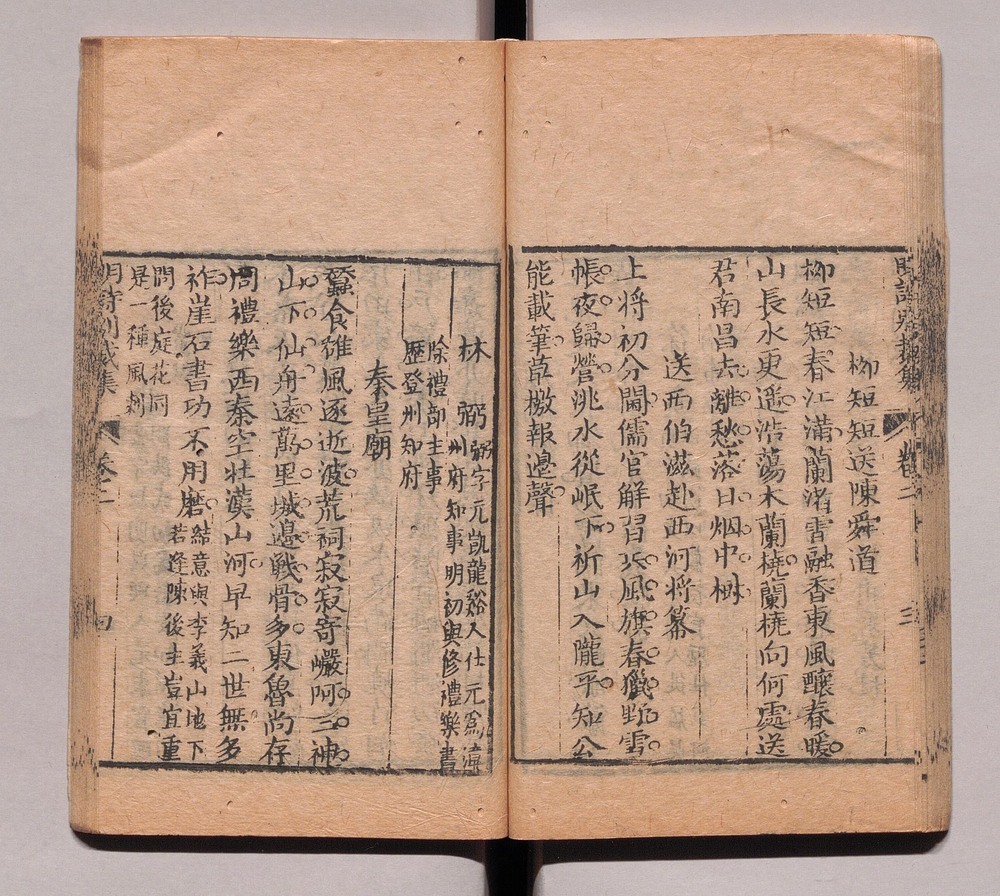 明詩別裁集 卷二 三
柳短短送陳舜道
柳短短春江滿蘭渚雪融香東風釀春暖
山長水更遥浩蕩木蘭橈蘭橈向何處送
君南昌去離愁落日烟中樹
送西伯滋赴西河將幕
上將初分閫儒官解習兵風旗春獵野雪
帳夜歸營洮水從岷下祈山入隴平知公
能載筆草檄報邊聲
林弼
弼字元凱龍谿人仕元為漳
州府知事明初與修禮樂書
除禮部主事
歷登州知府
秦皇廟
蠶食雄風逐逝波荒祠寂寂寄巖阿三神
山下仙舟遠萬里城邊戰骨多東魯尚存
周禮樂西秦空壯漢山河早知二世無多
祚崖石書功不用磨
結意與李義山地下
若逢陳後主豈宜重
問後庭花同
是一種風刺
明詩別裁集 卷二 四